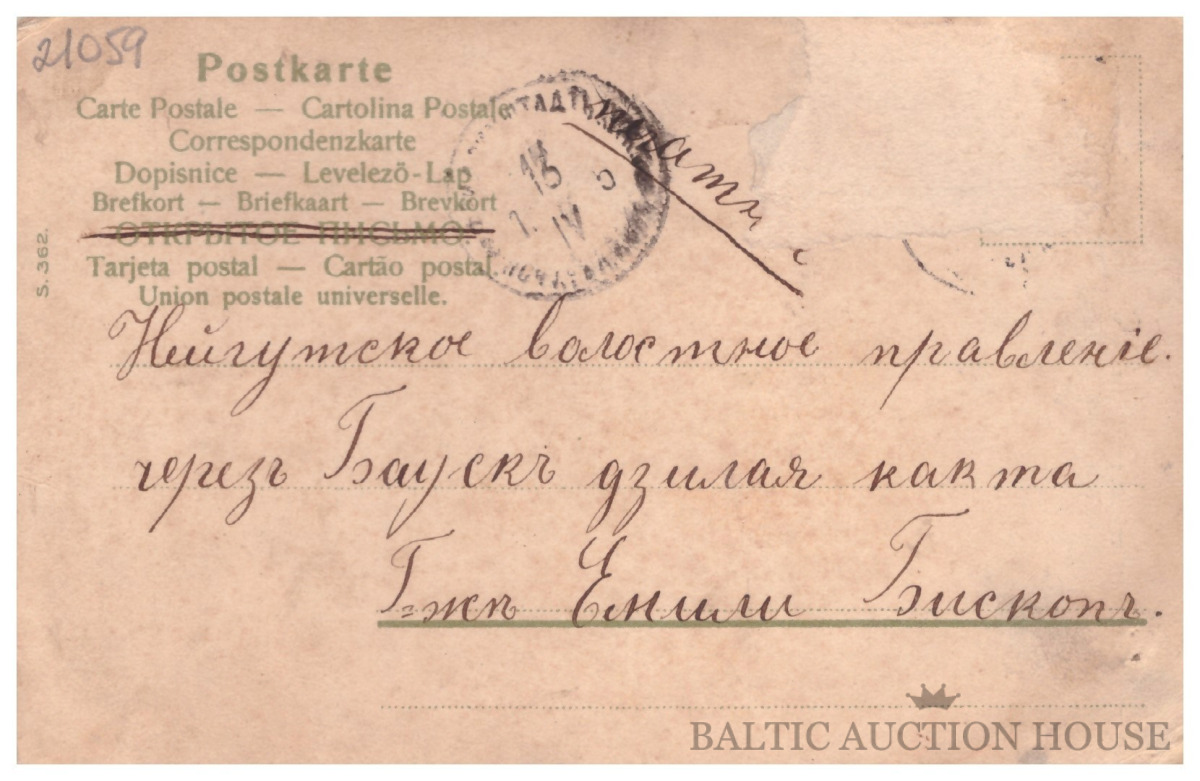 21059
Postkarte
Carte Postale — Cartolina Postale
Correspondenzkarte
Dopisnice — Levelező-Lap
Brefkort — Briefkaart — Brevkort
ОТКРЫТОЕ ПИСЬМО.
Tarjeta postal — Cartão postal
Union postale universelle.
S. 362.
15
IV
Нейгутское волостное правленіе.
черезъ Баускъ дзилая какта
Г-жѣ Емили Бископъ.
BALTIC AUCTION HOUSE